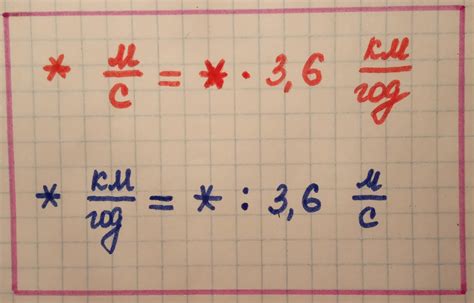 * м/с = * · 3,6 км/год
* км/год = * : 3,6 м/с